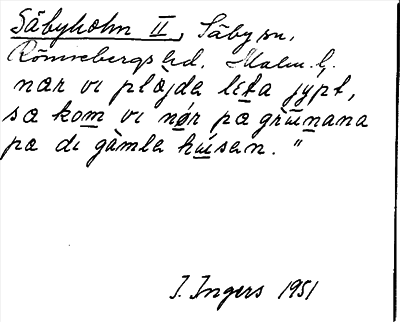 Säbyholm II, Säby sn,
Rönnebergs hd. Malm. l.
nær vi plöjda leta jypt,
sa kom vi nør pa grunana
pa di gamla husen."
I. Ingers 1951